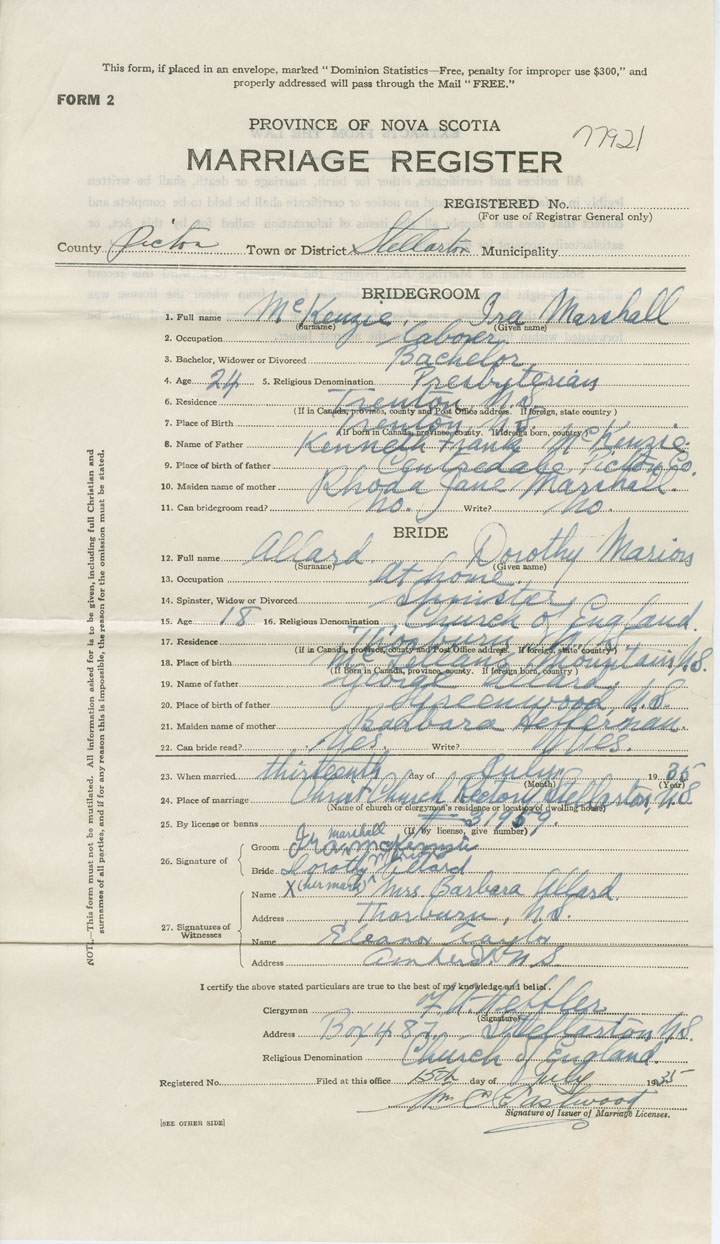 This form, if placed in an envelope, marked "Dominion Statistics—Free, penalty for improper use $300," and
properly addressed will pass through the Mail "FREE."
FORM 2
PROVINCE OF NOVA SCOTIA
77921
MARRIAGE REGISTER
REGISTERED No.
(For use of Registrar General only)
County Pictou Town or District Stellarton Municipality
BRIDEGROOM
1. Full name McKenzie, Ira Marshall
(Surname) (Given name)
2. Occupation Laborer
3. Bachelor, Widower or Divorced Bachelor
4. Age 24 5. Religious Denomination Presbyterian
6. Residence Trenton, N.S.
(If in Canada, province, county and Post Office address. If foreign, state country)
7. Place of Birth Trenton, N.S.
(If born in Canada, province, county. If foreign born, country)
8. Name of Father Kenneth Frank McKenzie.
9. Place of birth of father Pictou Co.
10. Maiden name of mother Rhoda Jane Marshall.
11. Can bridegroom read? no. Write? no.
BRIDE
12. Full name Allard, Dorothy Marion
(Surname) (Given name)
13. Occupation at home
14. Spinster, Widow or Divorced Spinster
15. Age 18 16. Religious Denomination Church of England.
17. Residence Thorburn, N.S.
(If in Canada, province, county and Post Office address. If foreign, state country)
18. Place of birth McLellans Mountain, N.S.
(If Born in Canada, province, county. If foreign born, country)
19. Name of father George Allard
20. Place of birth of father Greenwood, N.S.
21. Maiden name of mother Barbara Heffernan
22. Can bride read? Yes. Write? Yes.
23. When married thirteenth day of July 1935
(Month) (Year)
24. Place of marriage Christ Church Rectory, Stellarton, N.S.
(Name of church or clergyman's residence or location of dwelling house)
25. By license or banns # 31959.
(If by license, give number)
26. Signature of
Groom Ira marshall
Bride Dorothy Allard
27. Signatures of
Witnesses
Name X (her mark) Mrs. Barbara Allard
Address Thorburn, N.S.
Name Eleanor Taylor
Address Amherst N S
I certify the above stated particulars are true to the best of my knowledge and belief.
Clergyman
(Signature)
Address Box 487, Stellarton, N.S.
Religious Denomination Church of England.
Registered No. Filed at this office 15th day of July 1935
Wm C Eastwood
Signature of Issuer of Marriage Licenses.
[SEE OTHER SIDE]
NOTE.—This form must not be mutilated. All information asked for is to be given, including full Christian and
surnames of all parties, and if for any reason this is impossible, the reason for the omission must be stated.